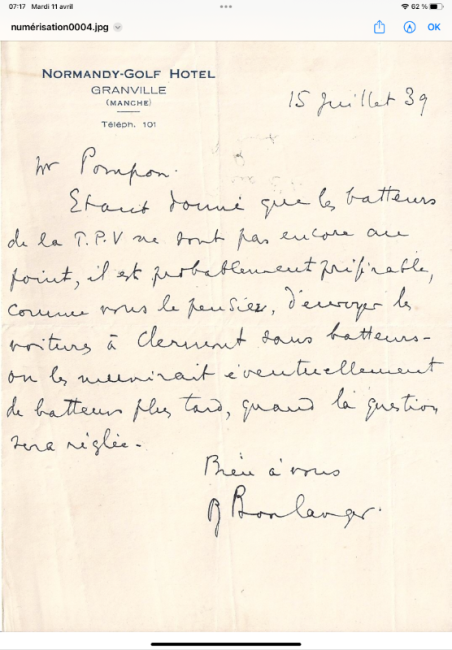 07:17 Mardi 11 avril
62 %
numérisation0004.jpg
OK
NORMANDY-GOLF HOTEL
GRANVILLE
(MANCHE)
Téléph. 101
15 Juillet 39
Mr Pompon.
Etant donné que les batteurs
de la T.P.V ne sont pas encore au
point, il est probablement préférable,
comme vous le pensiez, d'envoyer les
voitures à Clermont sans batteurs-
on les munirait éventuellement
de batteurs plus tard, quand la question
sera réglée.
Bien à vous
Boulanger.